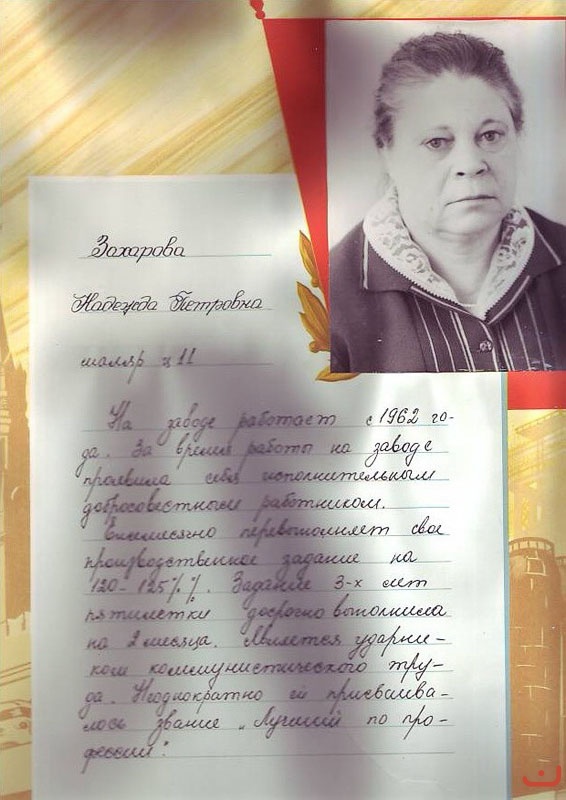 Захарова
Надежда Петровна
маляр ц 11
На заводе работает с 1962 го-
да. За время работы на заводе
проявила себя исполнительным
добросовестным работником.
Ежемесячно перевыполняет свое
производственное задание на
120-125%%. Задание 3-х лет
пятилетки досрочно выполнила
на 2 месяца. Является ударни-
ком коммунистического тру-
да. Неоднократно ей присваива-
лось звание "Лучший по про-
фессии".